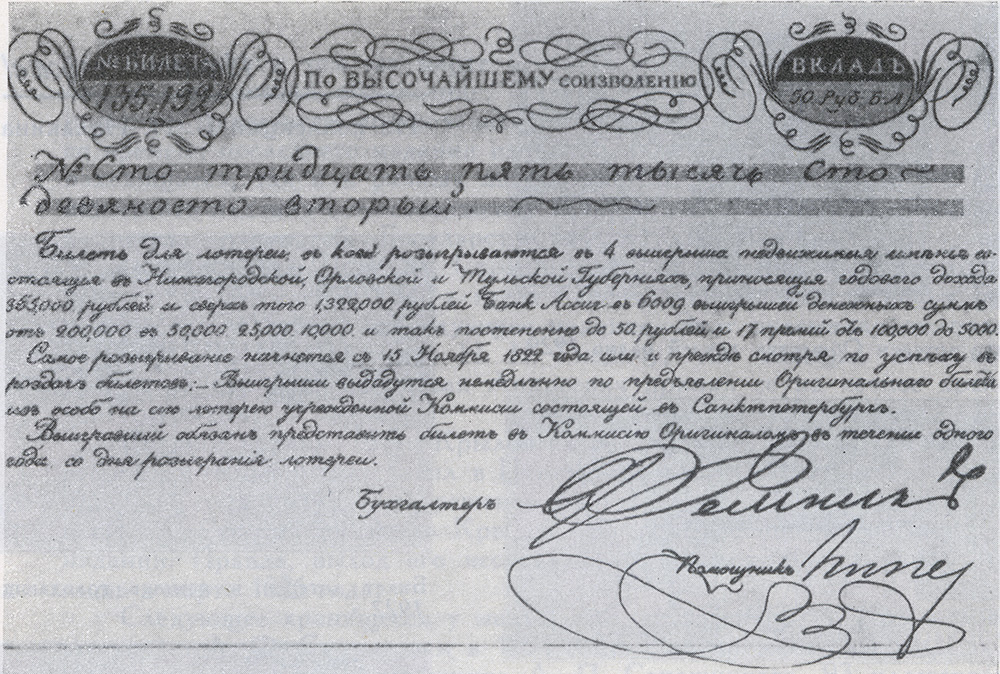 № БИЛЕТА
135,192
По ВЫСОЧАЙШЕМУ соизволению
ВКЛАДЪ
50 Руб. Б. А.
№ Сто тридцать пять тысячь Сто
девяносто вторый.
Билетъ для лотереи, въ коей розыгрываются въ 4 выигрыша недвижимыя имѣнія со-
стоящия въ Нижегородской, Орловской и Тульской Губернияхъ, приносящия годоваго дохода
355,000 рублей и сверхъ того 1,322,000 рублей Банк Ассиг въ 6009 выигрышей денежныхъ суммъ
отъ 200,000 въ 50,000 25,000 10,000 и такъ постепенно до 50 рублей и 17 премий отъ 100,000 до 5000.
Самое розыгрывание начнется съ 15 Ноября 1822 года или и прежде смотря по успѣху въ
роздачѣ билетовъ;— Выигрыши выдадутся немедлѣнно по предъявлении Оригинальнаго билета
изъ особо на сию лотерею учрежденной Коммисии состоящей въ Санктпетербургѣ.
Выигравший обязанъ представить билетъ въ Коммисію Оригиналомъ въ течении одного
года со дня розыгранія лотереи.
Бухгалтеръ
Помощникъ